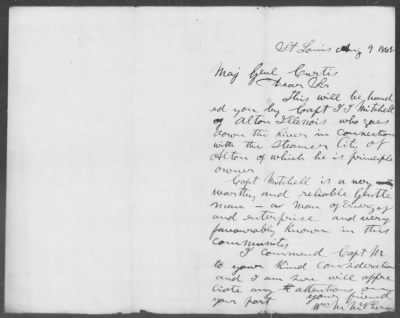 St Louis Aug 9 1862
Maj Genl Curtis
Dear Sir
This will be hand
ed you by Capt J J Mitchell
of Alton Illinois who goes
down the River in connection
with the Steamer City of
Alton of which he is principle
owner
Capt Mitchell is a very
worthy and reliable Gentle
man - a man of Energy
and enterprise and very
favourably known in this
community
I commend Capt M
to your Kind Consideration
and I am sure will appre
ciate any attentions on
your part
your friend
Wm M